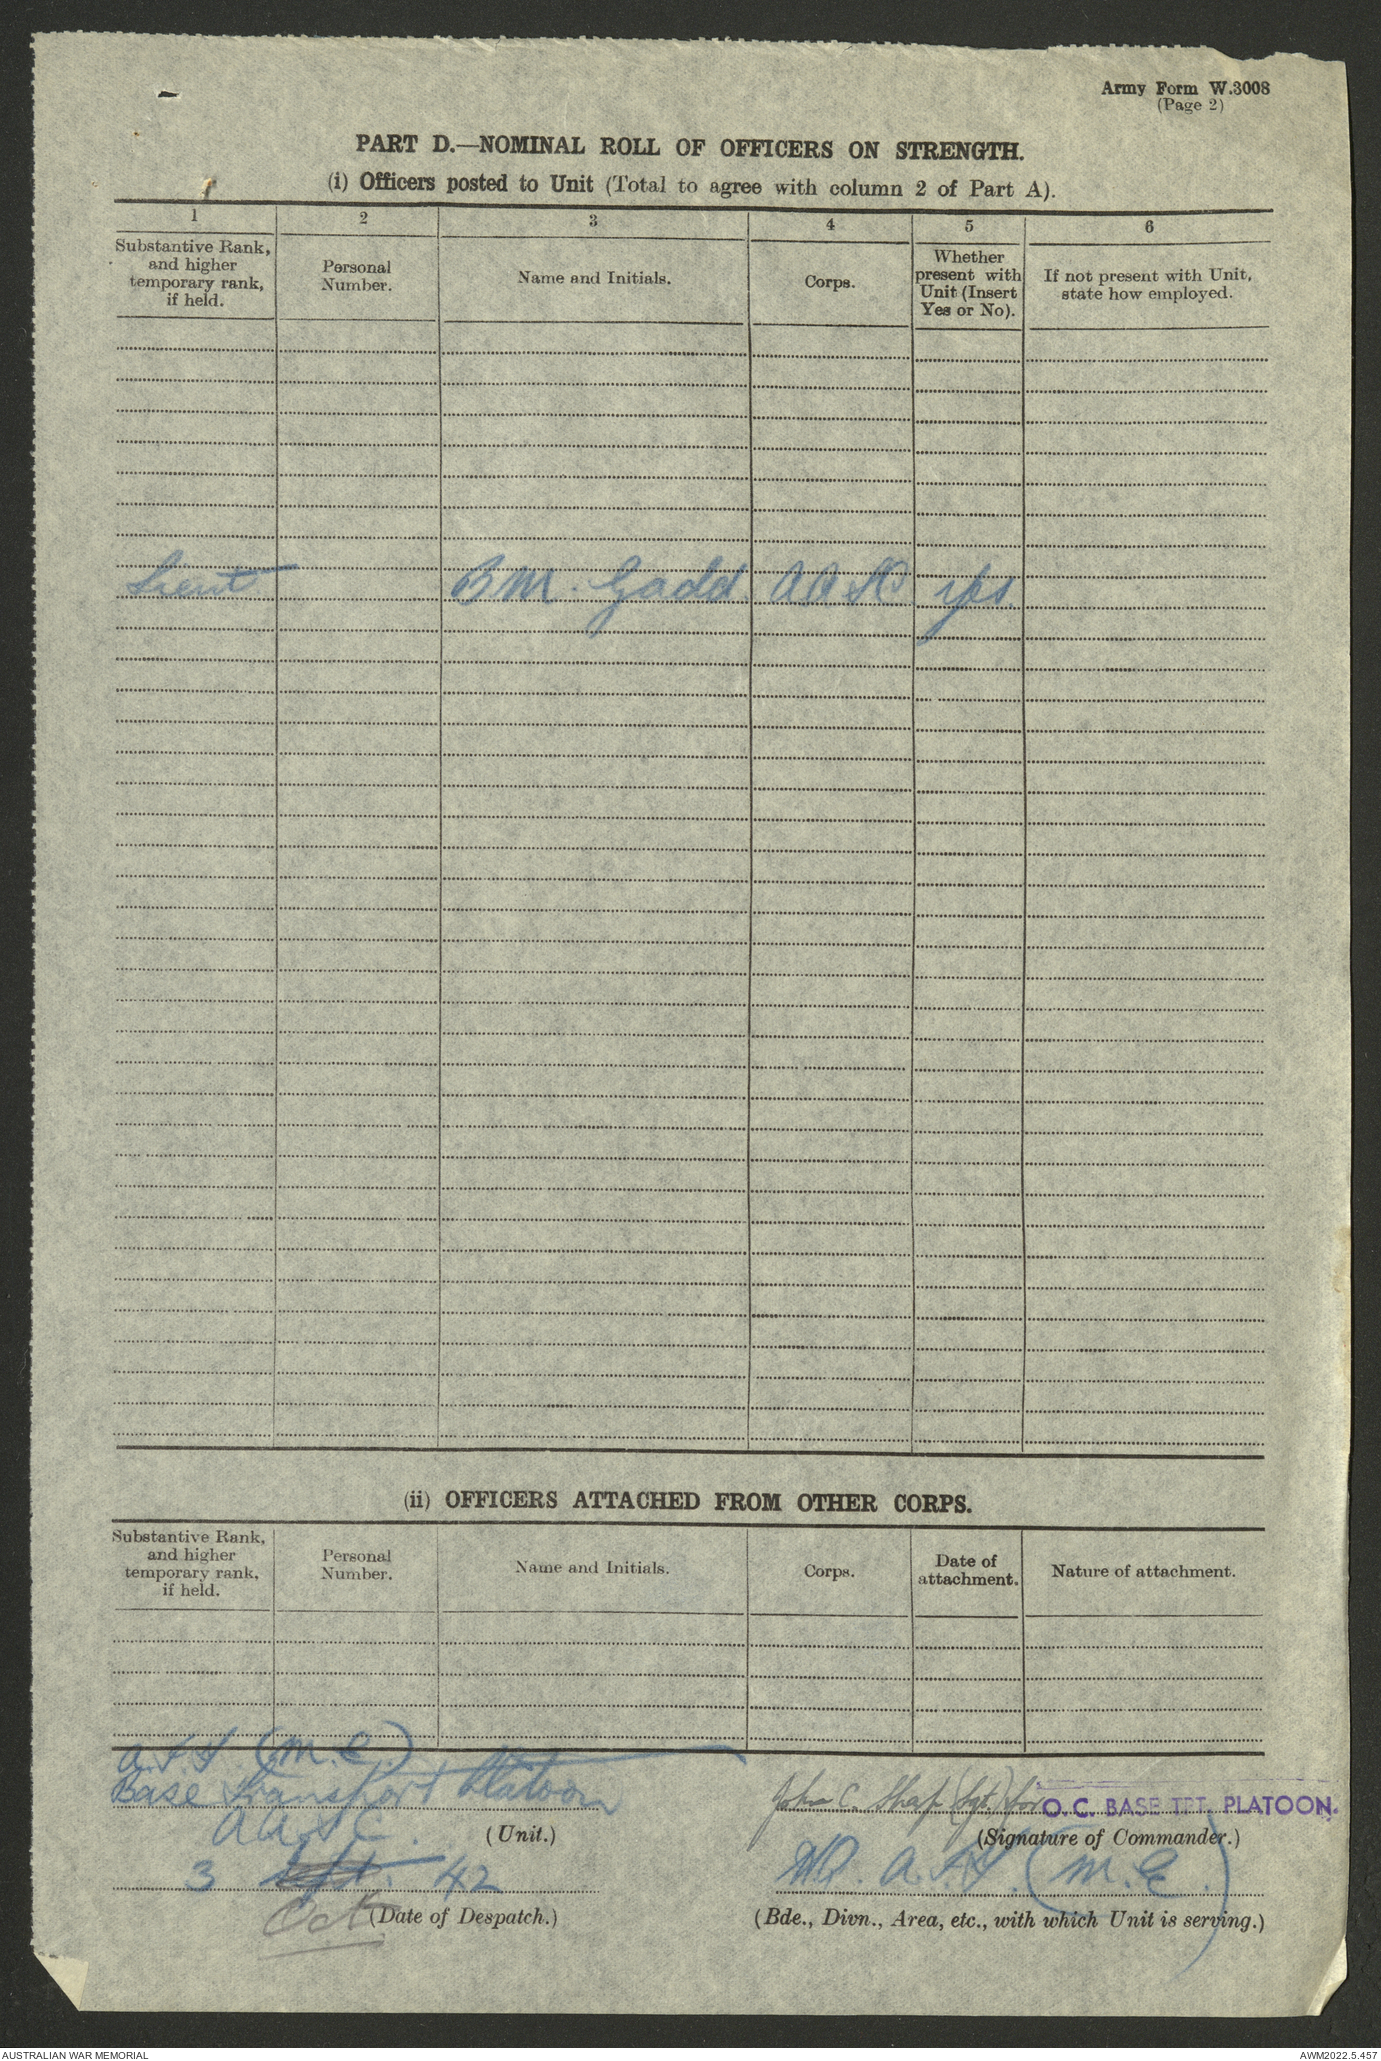 Army Form W.3008
(Page 2)
PART D.—NOMINAL ROLL OF OFFICERS ON STRENGTH.
(i) Officers posted to Unit (Total to agree with column 2 of Part A).
1 2 3 4 5 6
Substantive Rank, and higher temporary rank, if held. Personal Number. Name and Initials. Corps. Whether present with Unit (Insert Yes or No). If not present with Unit, state how employed.
Lieut B M. Gadd. AASC yes.
(ii) OFFICERS ATTACHED FROM OTHER CORPS.
Substantive Rank, and higher temporary rank, if held. Personal Number. Name and Initials. Corps. Date of attachment. Nature of attachment.
A.I.F. (M.E.)
Base Transport Platoon
AASC.
(Unit.)
John C. Sharp (Sgt.) for O.C. BASE TPT. PLATOON.
(Signature of Commander.)
3 Sept. 42
Oct
(Date of Despatch.)
A.I.F. (M.E.)
(Bde., Divn., Area, etc., with which Unit is serving.)
AUSTRALIAN WAR MEMORIAL
AWM2022.5.457